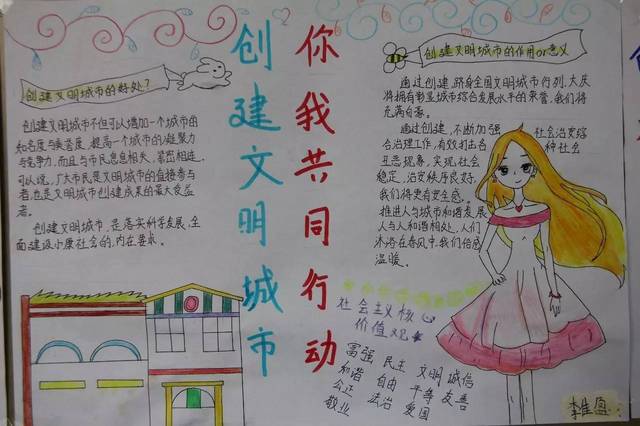 创建文明城市
你我共同行动
创建文明城市的好处?
创建文明城市不但可以增加一个城市的
知名度与美誉度,提高一个城市的凝聚力
与竞争力,而且与市民息息相关,紧密相连,
可以说,广大市民是文明城市的直接参与
者,也是文明城市创建成果的最大受益
者。
创建文明城市,是落实科学发展,全
面建设小康社会的,内在要求。
创建文明城市的作用or意义
通过创建,跻身全国文明城市行列,大庆
将拥有彰显城市综合发展水平的荣誉,我们将
充满自豪。
通过创建,不断加强 社会治安综
合治理工作,有效打击各 种社会
丑恶现象,实现社会
稳定,治安秩序良好,
我们将更有安全感。
推进人与城市和谐发展
人与人和谐相处,人们
沐浴在春风中,我们倍感
温暖。
社会主义核心
价值观
富强 民主 文明 诚信
和谐 自由 平等 友善
公正 法治 爱国
敬业